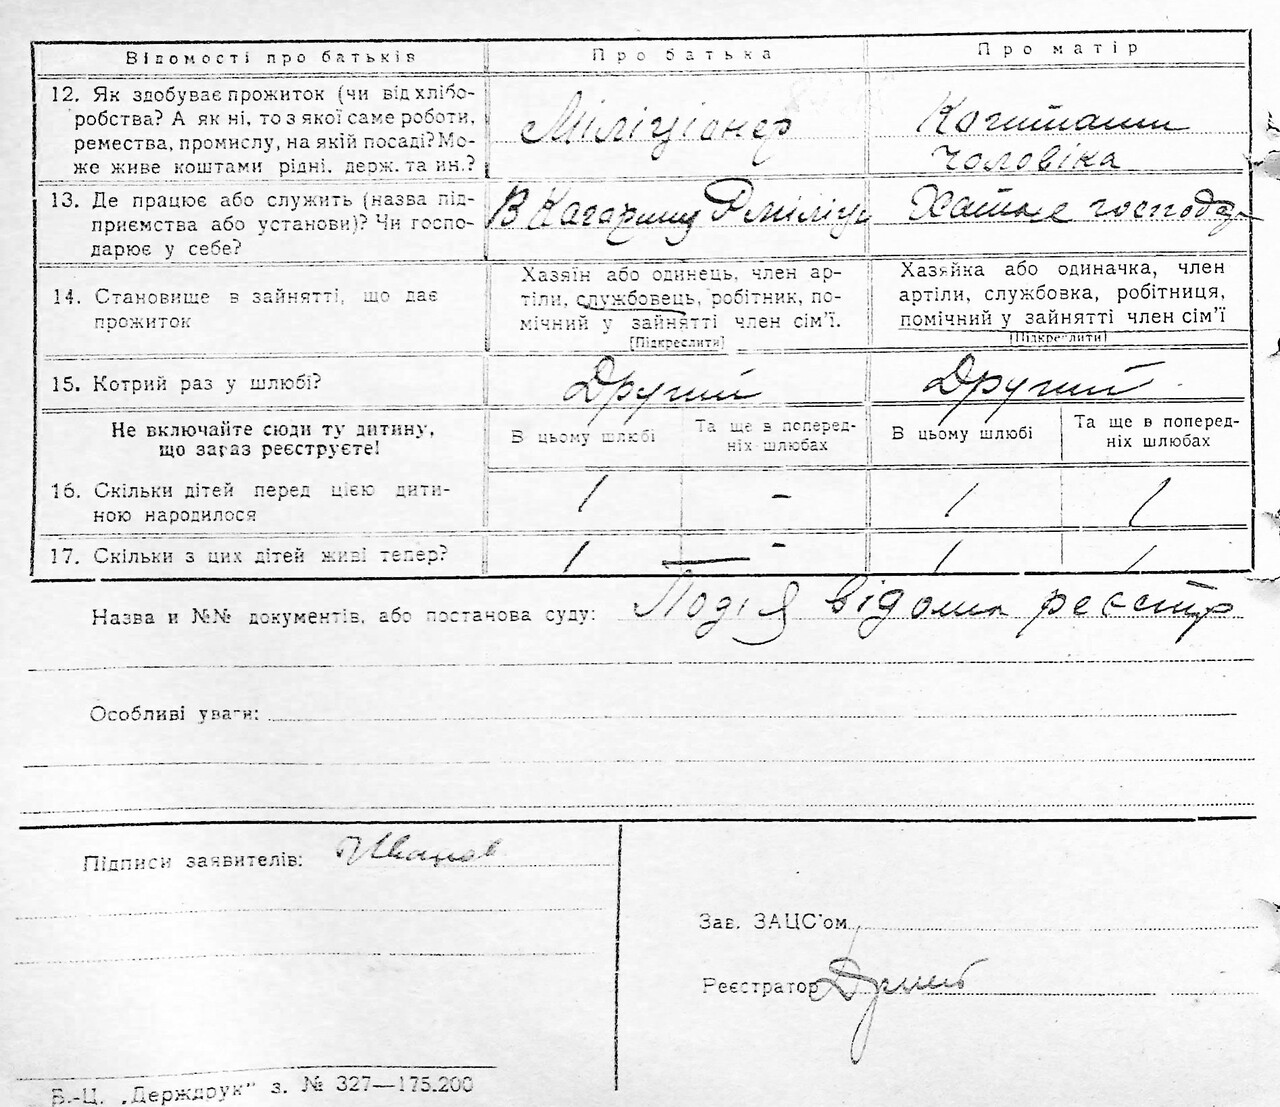 Відомості про батьків Про батька Про матір
12. Як здобуває прожиток (чи від хлібо-
робства? А як ні, то з якої саме роботи,
ремества, промислу, на якій посаді? Мо-
же живе коштами рідні. держ. та ин.?
Міліціонер
Коштами
чоловіка
13. Де працює або служить (назва під-
приємства або установи)? Чи госпо-
дарює у себе?
Хатнє господар
14. Становище в зайнятті, що дає
прожиток
Хазяїн або одинець, член ар-
тіли, службовець, робітник, по-
мічний у зайнятті член сім'ї.
[Підкреслити]
Хазяйка або одиначка, член
артіли, службовка, робітниця,
помічний у зайнятті член сім'ї
[Підкреслити]
15. Котрий раз у шлюбі? Другий Другий
Не включайте сюди ту дитину,
що зараз реєструєте!
В цьому шлюбі
Та ще в поперед-
ніх шлюбах
В цьому шлюбі
Та ще в поперед-
ніх шлюбах
16. Скільки дітей перед цією дити-
ною народилося
1 - 1 1
17. Скільки з цих дітей живі тепер? 1 - 1 1
Назва и №№ документів, або постанова суду: Подія відома реєстр
Особливі уваги:
Підписи заявителів: Иванов
Зав. ЗАЦС'ом
Реєстратор
Б.-Ц. „Держдрук" з. № 327—175.200